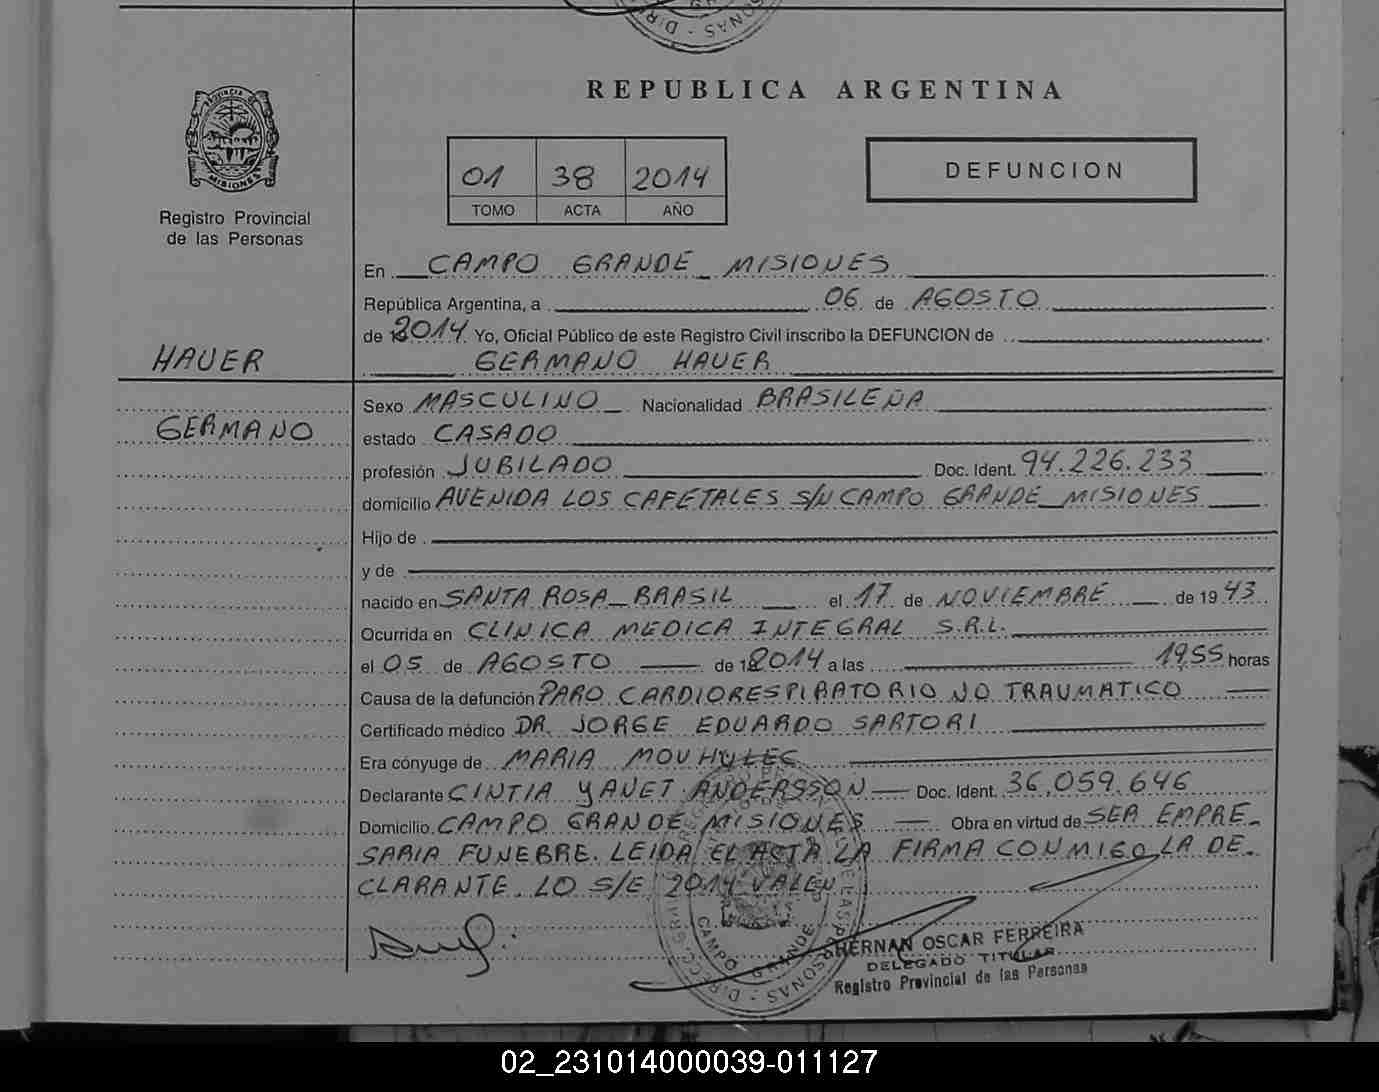 REPUBLICA ARGENTINA
PROVINCIA DE
MISIONES
Registro Provincial
de las Personas
01 38 2014
TOMO ACTA AÑO
DEFUNCION
En CAMPO GRANDE _ MISIONES
República Argentina, a 06 de AGOSTO
de 2014 Yo, Oficial Público de este Registro Civil inscribo la DEFUNCION de
HAUER
GERMANO HAUER
Sexo MASCULINO _ Nacionalidad BRASILEÑA
GERMANO
estado CASADO
profesión JUBILADO Doc. Ident. 94.226.233
domicilio AVENIDA LOS CAFETALES S/N CAMPO GRANDE _ MISIONES
Hijo de
y de
nacido en SANTA ROSA _ BRASIL el 17 de NOVIEMBRE de 19 43
Ocurrida en CLINICA MEDICA INTEGRAL S.R.L.
el 05 de AGOSTO de 2014 a las 19,55 horas
Causa de la defunción PARO CARDIORESPIRATORIO NO TRAUMATICO
Certificado médico DR. JORGE EDUARDO SARTORI
Era cónyuge de MARIA
Declarante CINTIA YANET ANDERSSON Doc. Ident. 36.059.646
Domicilio CAMPO GRANDE MISIONES Obra en virtud de SER EMPRE_
SARIA FUNEBRE. LEIDA EL ACTA LA FIRMA CONMIGO LA DE_
CLARANTE. LO S/E 2014 VALEN
CAMPO GRANDE
HERNAN OSCAR FERREIRA
DELEGADO TITULAR
Registro Provincial de las Personas
02_231014000039-011127